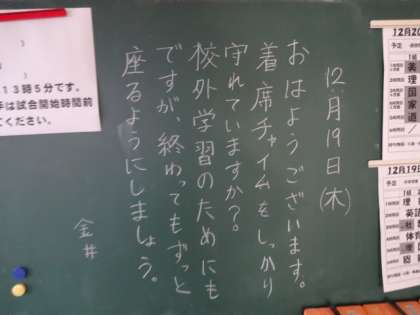 12月19日(木)
おはようございます。
着席チャイムをしっかり
守れていますか?
校外学習のためにも
ですが、終わってもずっと
座るようにしましょう。
金井
13時5分です。
手は試合開始時間前
てください。
12月20
予定
英
理
国
家
道
12月19
予定
理
英語
社
体育